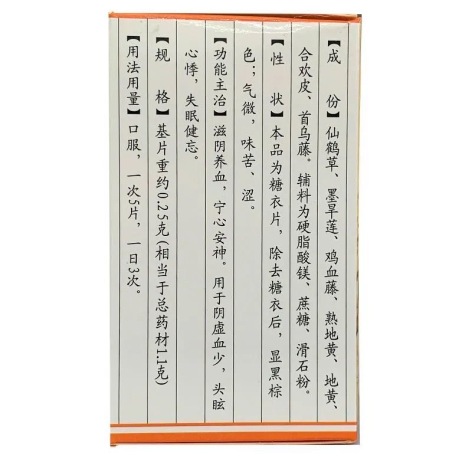 【成　份】仙鹤草、墨旱莲、鸡血藤、熟地黄、地黄、
合欢皮、首乌藤。辅料为硬脂酸镁、蔗糖、滑石粉。
【性　状】本品为糖衣片，除去糖衣后，显黑棕
色；气微，味苦、涩。
【功能主治】滋阴养血，宁心安神。用于阴虚血少，头眩
心悸，失眠健忘。
【规　格】基片重约0.25克(相当于总药材1.1克)
【用法用量】口服，一次5片，一日3次。